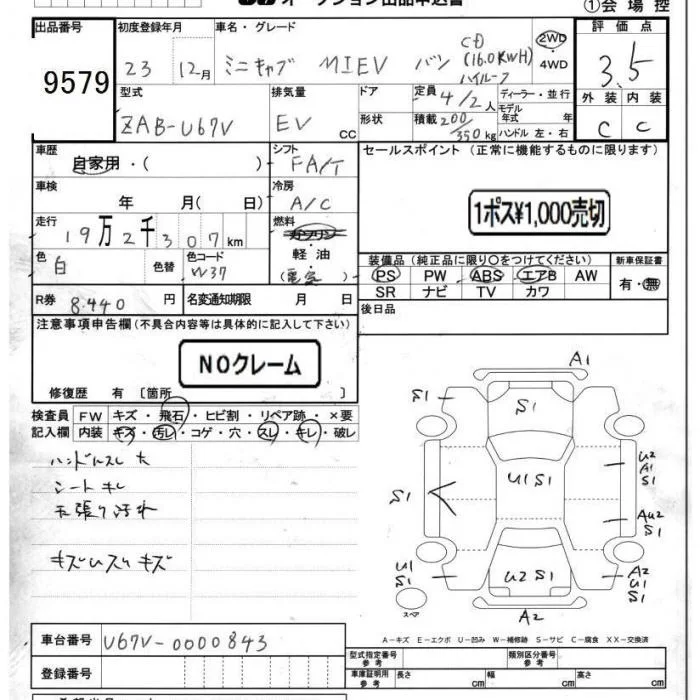 オークション出品申込書
①会場控
出品番号
9579
初度登録年月
23 12月
車名・グレード
ミニキャブ MIEV バン CD (16.0KWH) ハイルーフ
2WD
4WD
評価点
3.5
外装 内装
C C
型式
ZAB-U67V
排気量
EV CC
ドア
形状
定員 4/2人
積載 200/350kg
ディーラー・並行
モデル年式 年
ハンドル 左・右
車歴
自家用・( )
シフト
FA/T
車検
年 月( 日)
冷房
A/C
走行
19万2千307km
燃料
ガソリン
軽油
(電気)
色
白
色替
色コード
W37
R券 8.440 円
名変通知期限 月 日
セールスポイント (正常に機能するものに限ります)
1ポス¥1,000売切
装備品(純正品に限り○をつけてください)
PS PW ABS エアB AW
SR ナビ TV カワ
新車保証書
有・無
後日品
注意事項申告欄(不具合内容等は具体的に記入して下さい)
NOクレーム
修復歴 有 〔箇所 〕
検査員記入欄
FW キズ・飛石・ヒビ割・リペア跡・×要
内装 キズ・汚レ・コゲ・穴・スレ・キレ・破レ
ハンドルスレ大
シートキレ
天張り汚れ
キズUスリキズ
A1
S1
S1
U2
A1
S1
U1 S1
S1
AU2
S1
U1
S1
U2 S1
A2
U1
S1
スペア
A2
A－キズ E－エクボ U－凹み W－補修跡 S－サビ C－腐食 XX－交換済
車台番号 U67V-0000843
登録番号
型式指定番号 参考
類別区分番号 参考
車庫証明用 参考 長さ cm 幅 cm 高さ cm